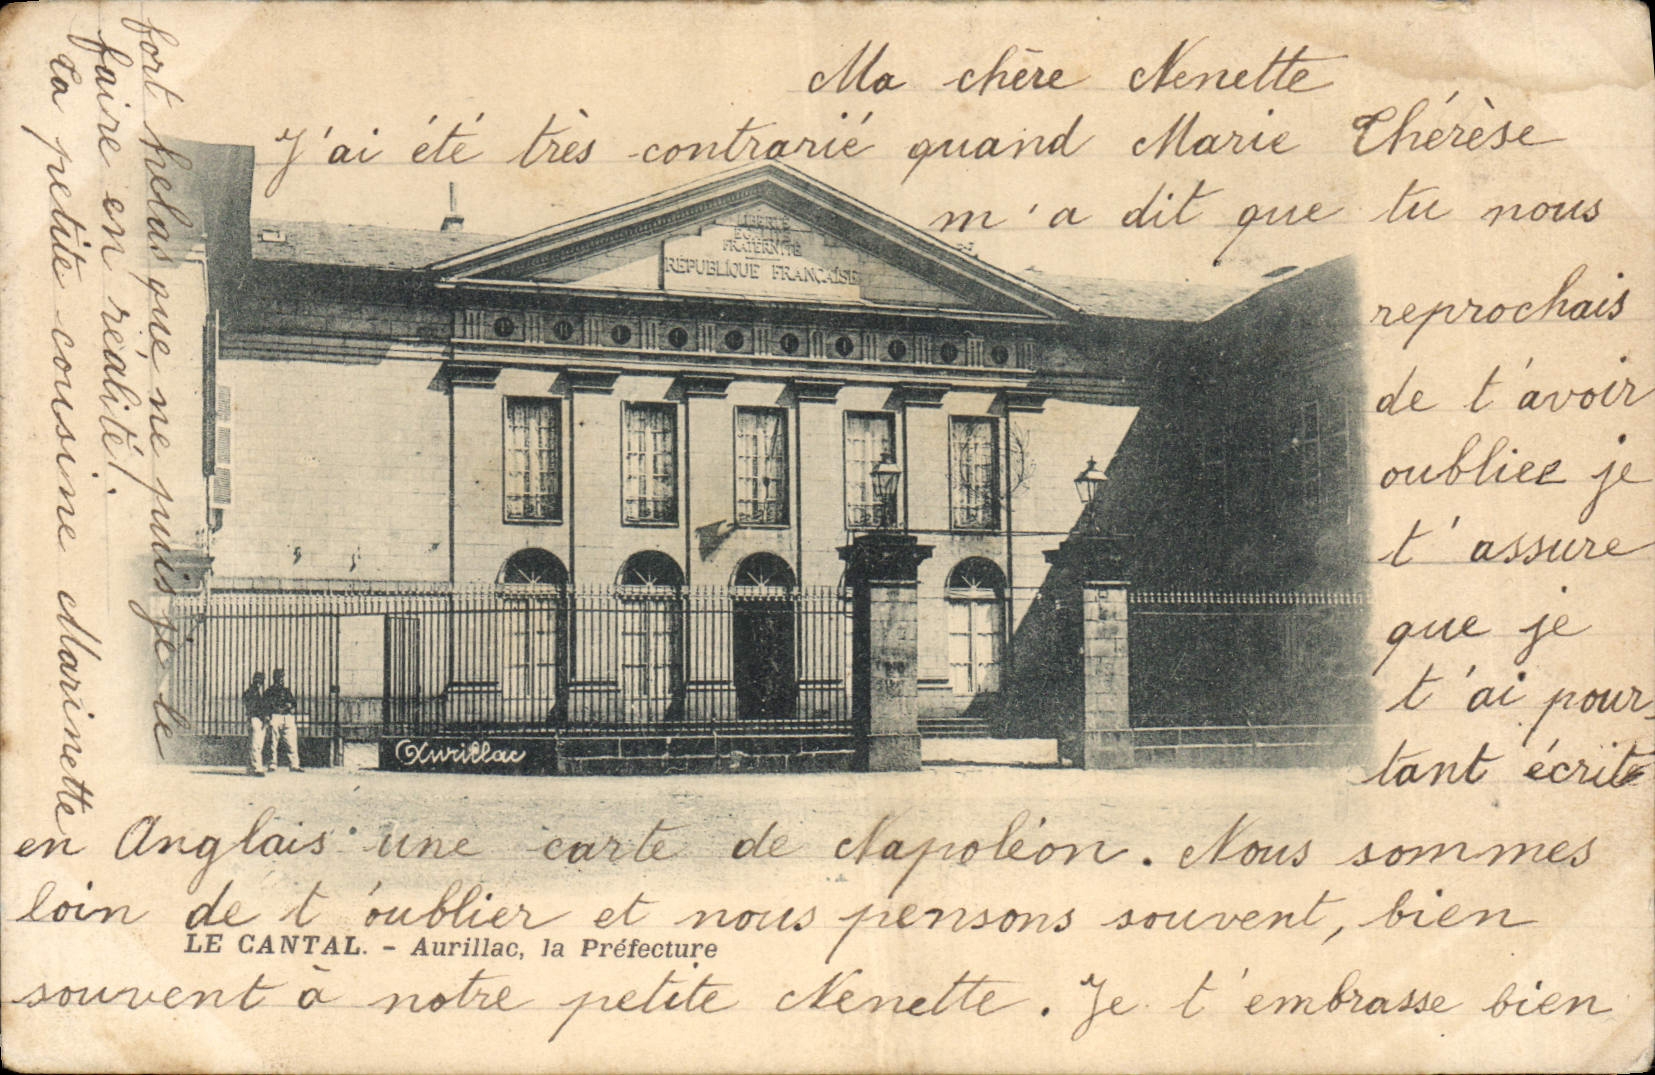 Ma chère Nenette
J'ai été très contrarié quand Marie Thérèse
m'a dit que tu nous
reprochais
de t'avoir
oubliee je
t'assure
que je
t'ai pour-
tant écrite
en Anglais une carte de Napoléon. Nous sommes
loin de t'oublier et nous pensons souvent, bien
souvent à notre petite Nenette. Je t'embrasse bien
fort helas que ne puis je le
faire en réalité!
ta petite cousine Marinette
LIBERTÉ
EGALITÉ
FRATERNITÉ
RÉPUBLIQUE FRANÇAISE
Aurillac
LE CANTAL. - Aurillac, la Préfecture